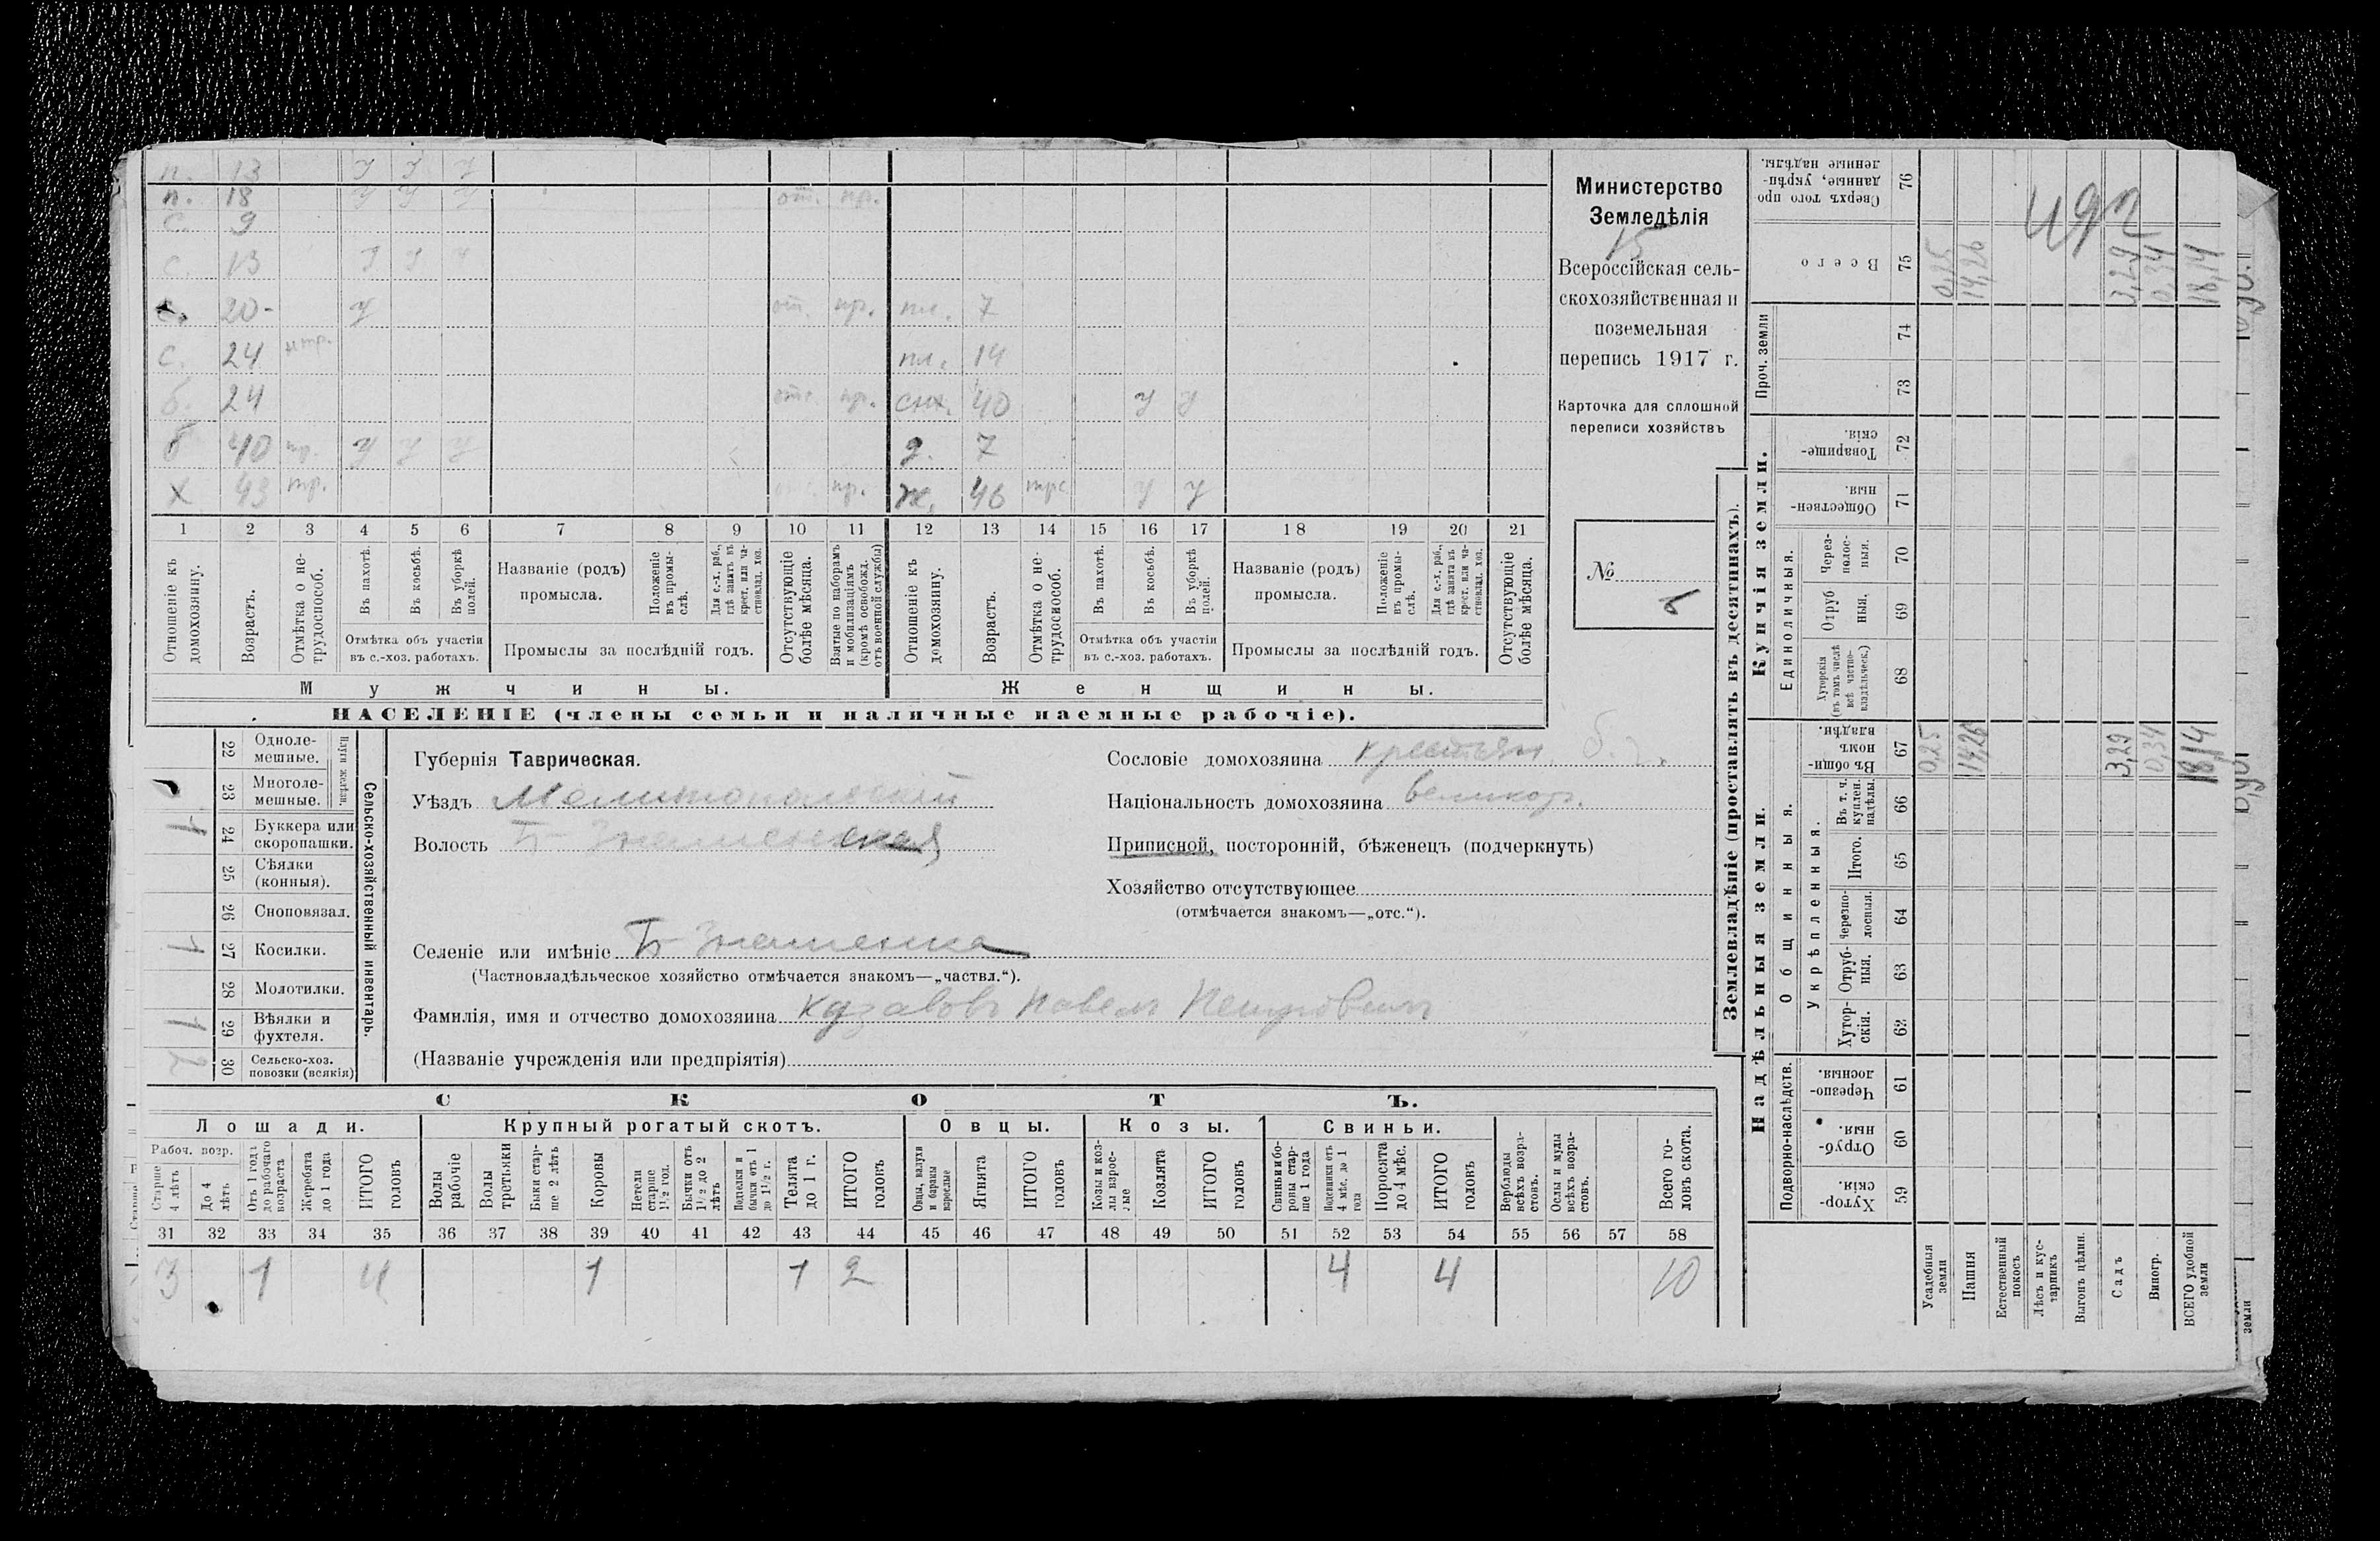 п. 13 У У У
п. 18 У У У от. пр.
с. 9
с. 13 У У У
с. 20 У от. пр. пл. 7
с. 24 нтр. пл. 14
б. 24 отс. пр. снх. 40 У У
б 40 нр. У У У д. 7
Х 43 тр. отс. пр. ж. 46 У У
1 2 3 4 5 6 7 8 9 10 11 12 13 14 15 16 17 18 19 20 21
Отношеніе къ домохозяину.
Возрастъ.
Отмѣтка о не-трудоспособ.
Въ пахотѣ.
Въ косьбѣ.
Въ уборкѣ полей.
Отмѣтка объ участіи въ с.-хоз. работахъ.
Названіе (родъ) промысла.
Положеніе въ промы-слѣ.
Для с.-х. раб., гдѣ занятъ въ крест. или ча-стновлад. хоз.
Промыслы за послѣдній годъ.
Отсутствующіе болѣе мѣсяца.
Взятые по наборамъ и мобилизаціямъ (кромѣ освобожд. отъ военной службы)
Отношеніе къ домохозяину.
Возрастъ.
Отмѣтка о не-трудоспособ.
Въ пахотѣ.
Въ косьбѣ.
Въ уборкѣ полей.
Отмѣтка объ участіи въ с.-хоз. работахъ.
Названіе (родъ) промысла.
Положеніе въ промы-слѣ.
Для с.-х. раб., гдѣ занята въ крест. или ча-стновлад. хоз.
Промыслы за послѣдній годъ.
Отсутствующіе болѣе мѣсяца.
Мужчины. Женщины.
НАСЕЛЕНІЕ (члены семьи и наличные наемные рабочіе).
Министерство
Земледѣлія
15
Всероссійская сель-
скохозяйственная и
поземельная
перепись 1917 г.
Карточка для сплошной
переписи хозяйствъ
№
Сельско-хозяйственный инвентарь.
Плуги желѣзн.
22 Одноле-мешные.
23 Многоле-мешные.
24 Буккера или скоропашки. 1
25 Сѣялки (конныя).
26 Сноповязал.
27 Косилки. 1
28 Молотилки.
29 Вѣялки и фухтеля. 1
30 Сельско-хоз. повозки (всякія) 2
Губернія Таврическая.
Уѣздъ Мелитопольскій
Волость Б Знаменская
Селеніе или имѣніе Б Знаменка
(Частновладѣльческое хозяйство отмѣчается знакомъ—„частвл.“).
Фамилія, имя и отчество домохозяина Павелъ Петровичъ
(Названіе учрежденія или предпріятія)
Сословіе домохозяина крестьян.
Національность домохозяина великор.
Приписной, посторонній, бѣженецъ (подчеркнуть)
Хозяйство отсутствующее
(отмѣчается знакомъ—„отс.“).
СКОТЪ.
Лошади. Крупный рогатый скотъ. Овцы. Козы. Свиньи.
Рабоч. возр.
Старше 4 лѣтъ
До 4 лѣтъ
Отъ 1 года до рабочаго возраста
Жеребята до 1 года
ИТОГО головъ
Волы рабочіе
Волы третьяки
Быки стар-ше 2 лѣтъ
Коровы
Нетели старше 1½ год.
Бычки отъ 1½ до 2 лѣтъ
Подтелки и бычки отъ 1 до 1½ г.
Телята до 1 г.
ИТОГО головъ
Овцы, валухи и бараны взрослые
Ягнята
ИТОГО головъ
Козы и коз-лы взрос-лые
Козлята
ИТОГО головъ
Свиньи и бо-ровы стар-ше 1 года
Подсвинки отъ 4 мѣс. до 1 года
Поросята до 4 мѣс.
ИТОГО головъ
Верблюды всѣхъ возра-стовъ.
Ослы и мулы всѣхъ возра-стовъ.
Всего го-ловъ скота.
31 32 33 34 35 36 37 38 39 40 41 42 43 44 45 46 47 48 49 50 51 52 53 54 55 56 57 58
3 1 4 1 1 2 4 4 10
Землевладѣніе (проставлять въ десятинахъ).
Надѣльныя земли.
Купчія земли.
Проч. земли
Подворно-наслѣдств.
Общинныя.
Укрѣпленныя.
Единоличныя.
Хутор-скія. 59
Отруб-ныя. 60
Черезпо-лосныя. 61
Хутор-скія. 62
Отруб-ныя. 63
Черезпо-лосныя. 64
Итого. 65
Въ т. ч. куплен. надѣлы. 66
Въ общи-номъ владѣн. 67
Хуторскія (въ томъ числѣ всѣ частно-владѣльческ.) 68
Отруб ныя. 69
Через-полос-ныя. 70
Обществен-ныя. 71
Товарище-скія. 72
73
74
Всего 75
Сверхъ того про данные, укрѣп-ленные надѣлы. 76
Усадебныя земли 0,25 0,25
Пашня 14,26 14,26
Естественный покосъ
Лѣсъ и кус-тарникъ
Выгонъ цѣлин.
Садъ 3,29 3,29
Виногр. 0,34 0,34
ВСЕГО удобной земли 18,14 18,14
земли